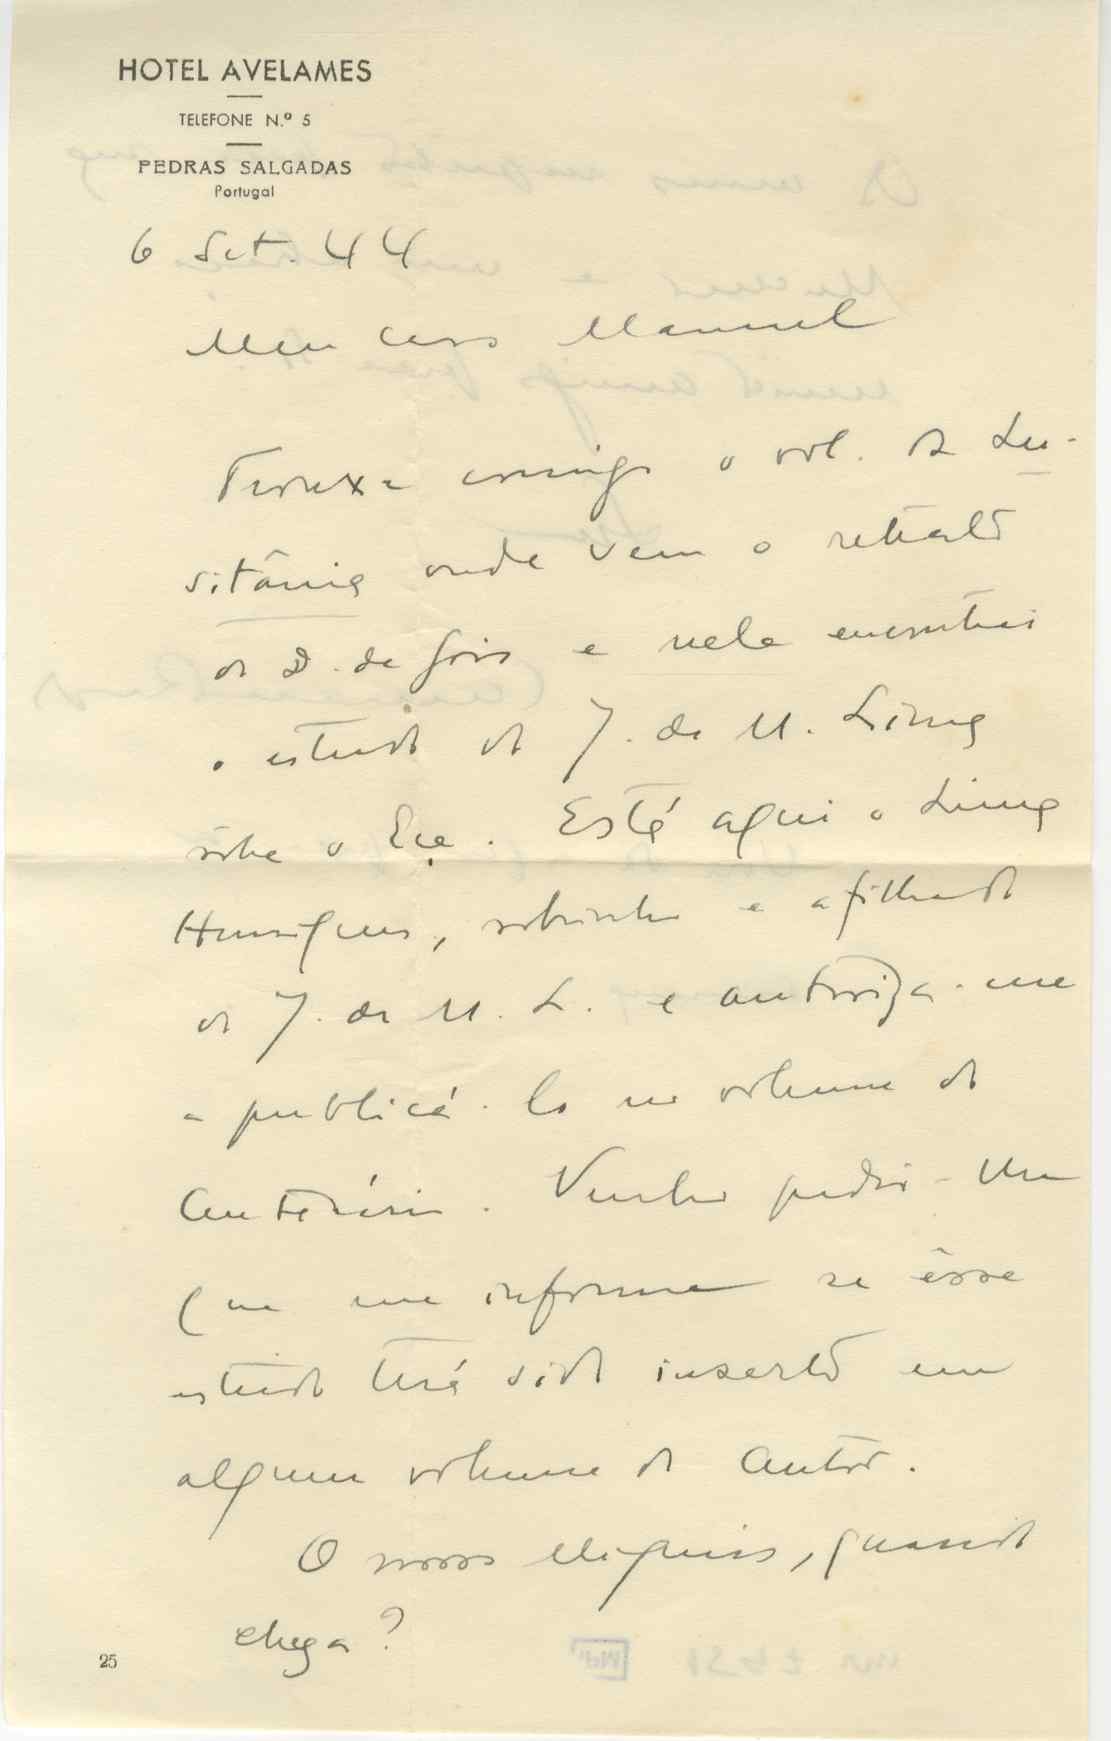 HOTEL AVELAMES
TELEFONE N.º 5
PEDRAS SALGADAS
Portugal
6 Set. 44
Meu caro Manuel
Trouxe comigo o vol. da Lu-
sitânia onde vem o retrato
do D. de Goes e nele encontrei
o estudo do J. de M. Lima
sôbre o Eça. Está aqui o Lima
Henriques, sobrinho e afilhado
do J. de M. L. e autoriza-me
a publicá-lo no volume do
Centenário. Venho pedir-lhe
que me informe se êsse
estudo terá sido inserto em
algum volume do autor.
O nosso Miguéis, quando
chega?
25